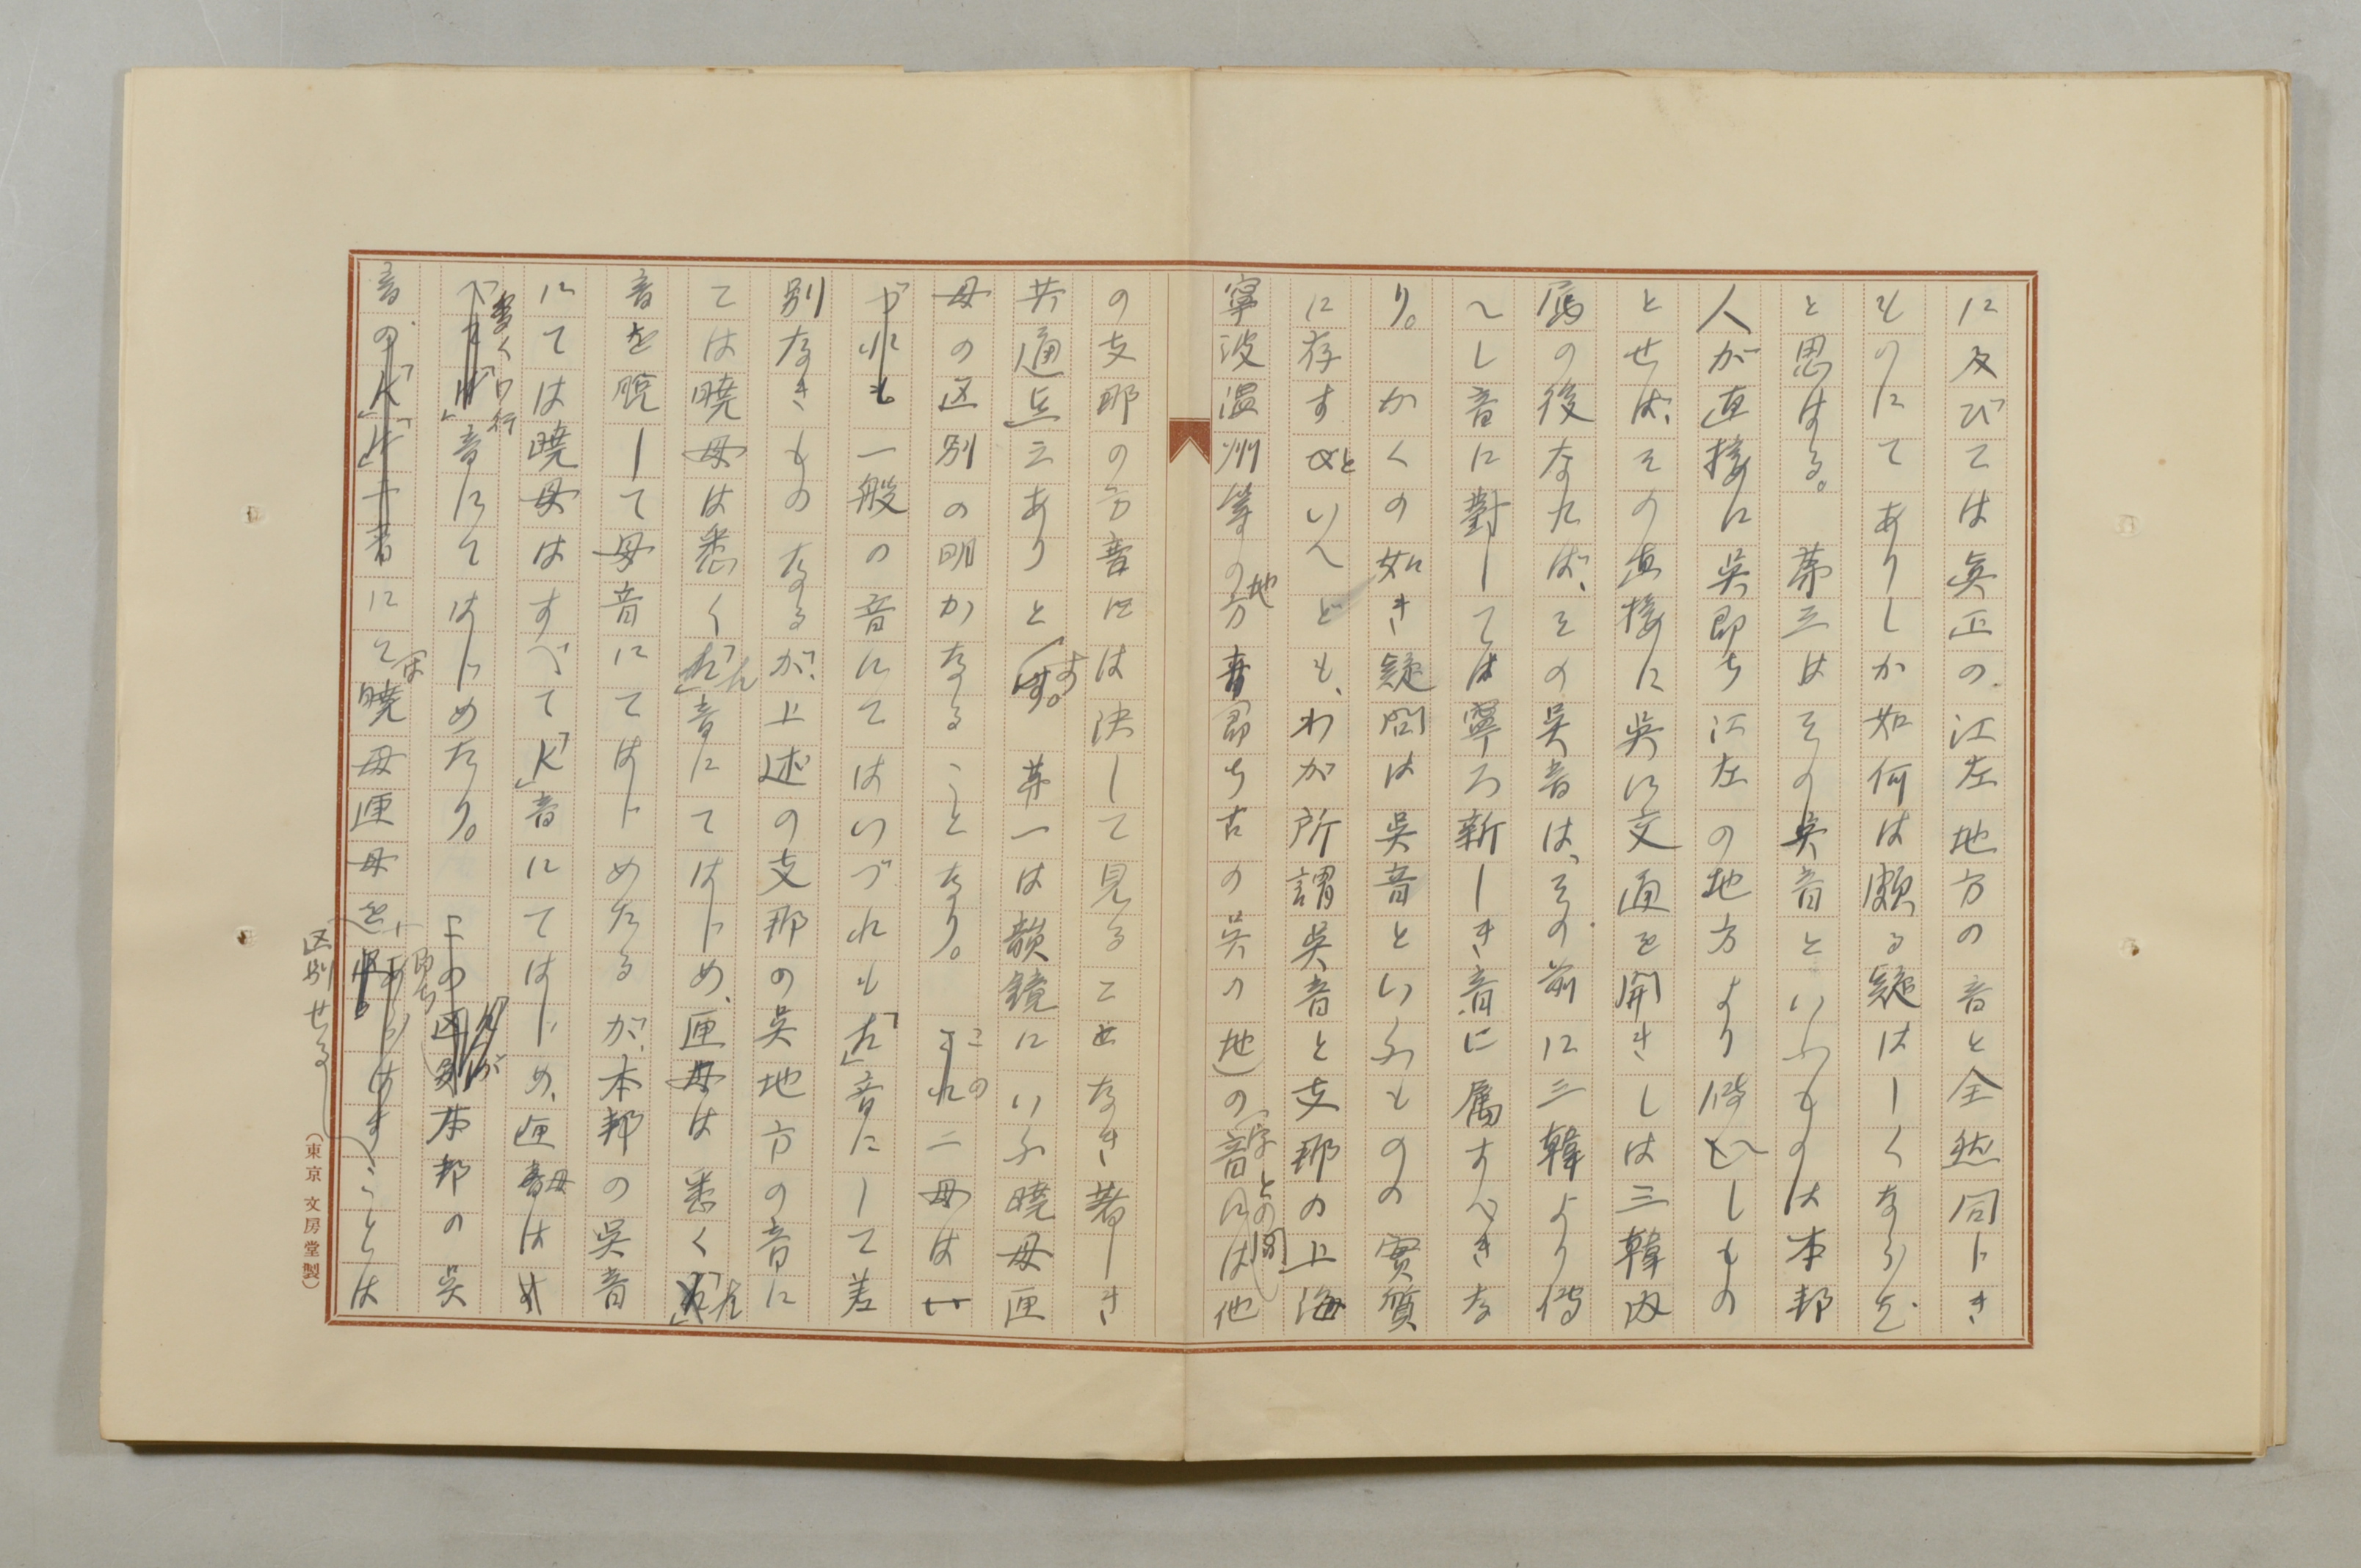 に及びては眞正の江左地方の音と全然同じき
ものにてありしか如何は頗る疑はしくならむ
と思はる。第三はその吳音といふものは本邦
人が直接に吳即ち江左の地方より傳へしもの
とせば、その直接に吳に交通を開きしは三韓内
属の後なれば、その吳音は、その前に三韓より傳
へし音に對しては寧ろ新しき音に属すべきな
り。かくの如き疑問は吳音といふものの實質
に存すといへども、わが所謂吳音と支那の上海
寧波温州等の地方即ち古の吳の地の字音との間には他
の支那の方音には決して見ることなき著しき
共通点三ありとす。第一は韻鏡にいふ曉母匣
母の区別の明かなることなり。この二母はい
づれも一般の音にてはいづれも「h」音にして差
別なきものなるが、上述の支那の吳地方の音に
ては曉母は悉く「h」音にてはじめ、匣母は悉く「h」
音を脱して母音にてはじめたるが、本邦の吳音
にては曉母はすべて「K」音にてはじめ、匣母は
悉くワ行音にてはじめたり。即ち本邦の吳
音にて曉母匣母を区別せることは
(東京 文房堂製)